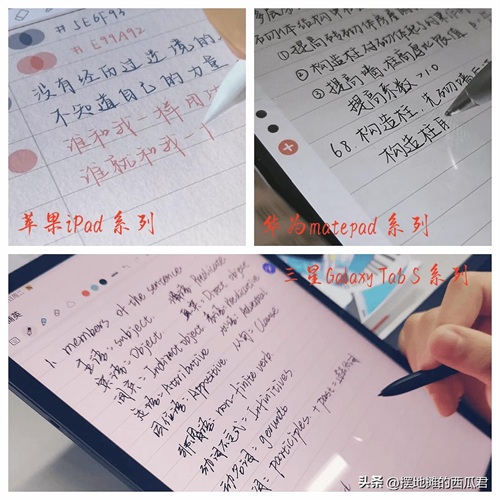 # 5E6F93
# E39A92
没有经历过逆境的人
不知道自己的力量
谁和我一样用功
谁就和我一
苹果iPad系列
①提高砌体
②构造柱
③提高墙柱高厚比限值
提高系数 >1.0
68. 构造柱. 先砌墙后
构造柱
华为matepad系列
三星Galaxy Tab S 系列
1. members of the sentence
主语: subject
宾语: Object.
间宾: Indirect object
定语: Attributive
同位语: Appositive
谓语: Predicate
直宾: Direct object
表语: Predicative
状语: Adverbial
从句: Clause
非谓语: non-finite verb.
动词不定式: Infinitives
动名词: gerunds
participles.
头条 @摆地摊的西瓜君